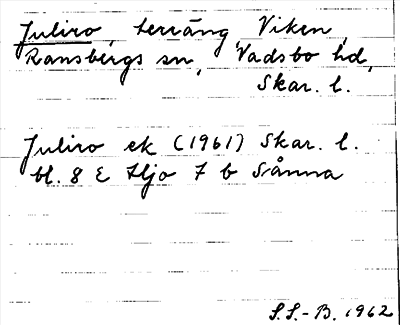 Juliro, terräng, Viken,
Ransbergs sn, Vadsbo hd,
Skar. l.
Juliro ek (1961) Skar. l.
bl. 8 E Hjo 7 b Sånna
S.S.-B. 1962